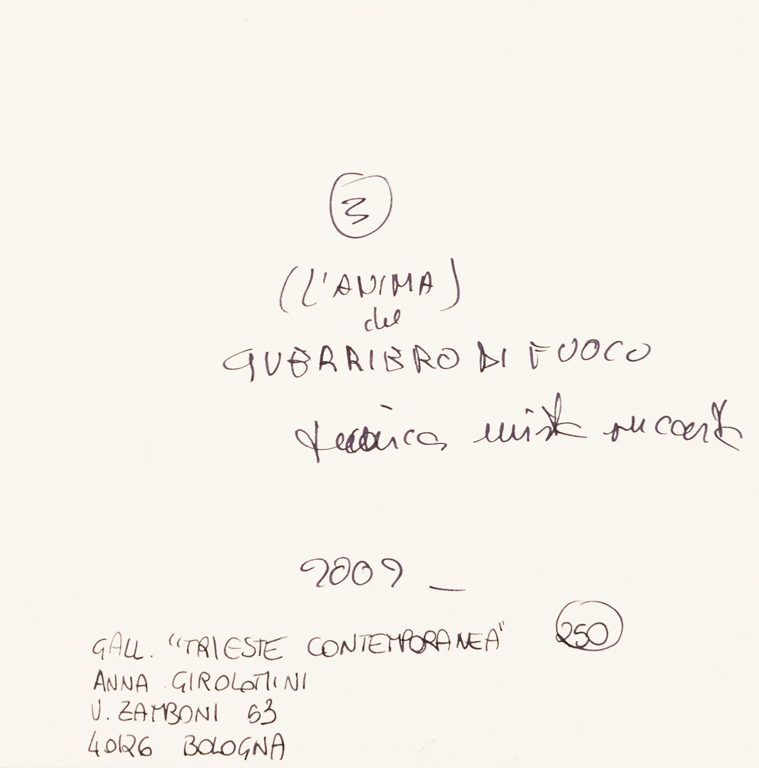 3
(L'ANIMA)
del
GUERRIERO DI FUOCO
tecnica mista su carta
2009 _
GALL. "TRIESTE CONTEMPORANEA" 250
ANNA GIROLOMINI
V. ZAMBONI 63
40126 BOLOGNA